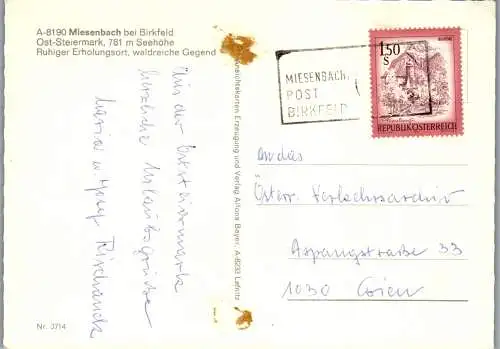 A-8190 Miesenbach bei Birkfeld
Ost-Steiermark, 781 m Seehöhe
Ruhiger Erholungsort, waldreiche Gegend
Aus der Oststeiermark
herzliche Urlaubsgrüße
Maria u.
Nr. 3714
Ansichtskarten Erzeugung und Verlag Alfons Bayer, A-8233 Lafnitz
MIESENBACH,
POST
BIRKFELD
1.50
S
REPUBLIK ÖSTERREICH
An das
Österr. Verkehrsarchiv
Aspangstraße 33
1030 Wien